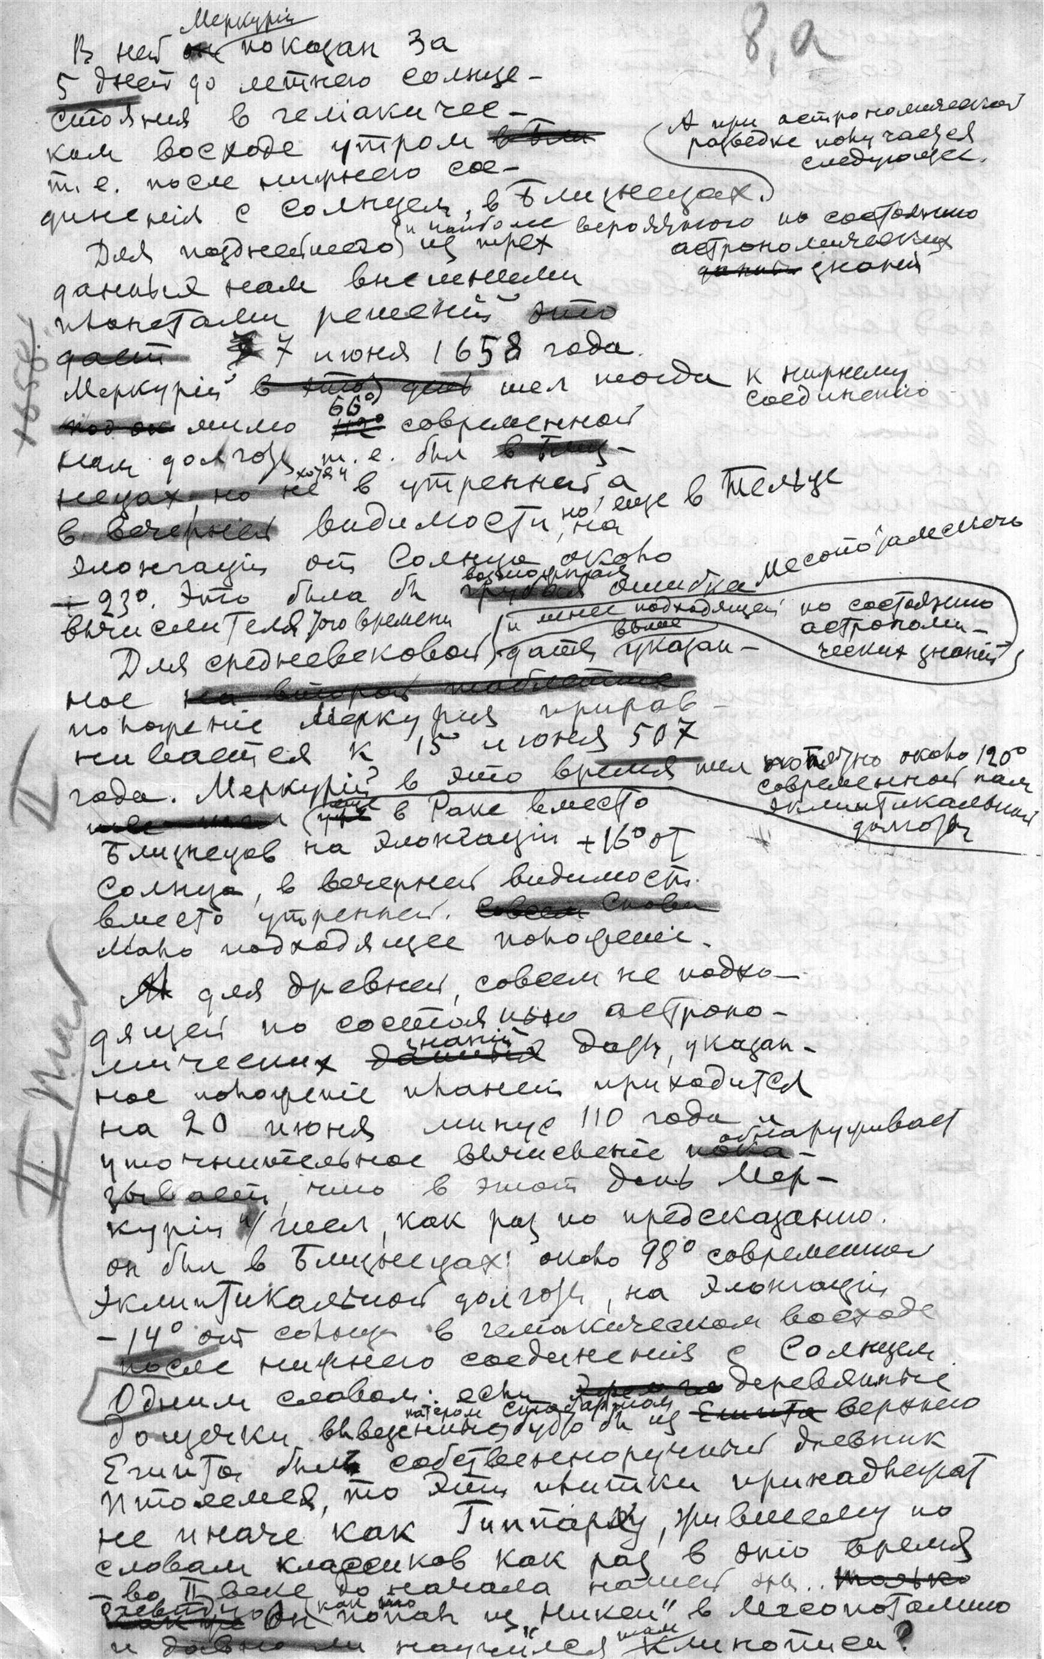 8,а
Меркурій
В ней показан за
5 дней до летнего солнце-
стояния в геліакичес-
ком восходе утром
т. е. после нижнего сое-
диненія с Солнцем, в Близнецах.
А при астрономической
разведке получается
следующее.
Для позднейшего (и наиболее вероятного по состоянию
астрономических
знаній
из трех
данных нам внешними
планетами решеній это
дает 7 июня 1658 года.
1658
Меркурій в этот день шел тогда к нижнему
соединению
мимо 66° современной
нам долготы, т. е. был в Близ-
нецах но не в утренней а
в вечерней видимости, но еще в Тельце на
элонгаціи от Солнца около
+23°. Это была бы грубая ошибка месопотамского
вычислителя того времени
Для средневековой (и менее подходящей по состоянию
астрономи-
ческих знаній)
даты выше указан-
ное на второй таблетке
положеніе Меркурия прирав-
нивается к 15 июня 507
года. Меркурій в это время шел около 120°
современной нам
эклиптикальной
долготы
в Раке вместо
Близнецов на элонгаціи +16° от
Солнца, в вечерней видимости
вместо утренней. Совсем Снова
Мало подходящее положеніе.
II
А для древней, совсем не подхо-
дящей по состоянию астроно-
мических знаній даты, указан-
ное положеніе планет приходится
на 20 июня минус 110 года и
уточнительное вычисленіе обнаруживает
пока-
зывает, что в этот день Мер-
курій и шел, как раз по предсказанию.
Он был в Близнецах около 98° современной
эклиптикальной долготы, на элонгаціи
-14° от солнца в геліакическом восходе
после нижнего соединенія с Солнцем
Одним словом: если деревянные
дощечки, вывезенные будто бы из Египта верхнего
Египта были собственноручный дневник
Птолемея, то эти плитки принадлежат
не иначе как Гиппарху, жившему по
словам классиков как раз в это время
- во II веке до начала нашей эры. только
Он как то попал из „Никеи" в Месопотамию
и научился там клинописи?